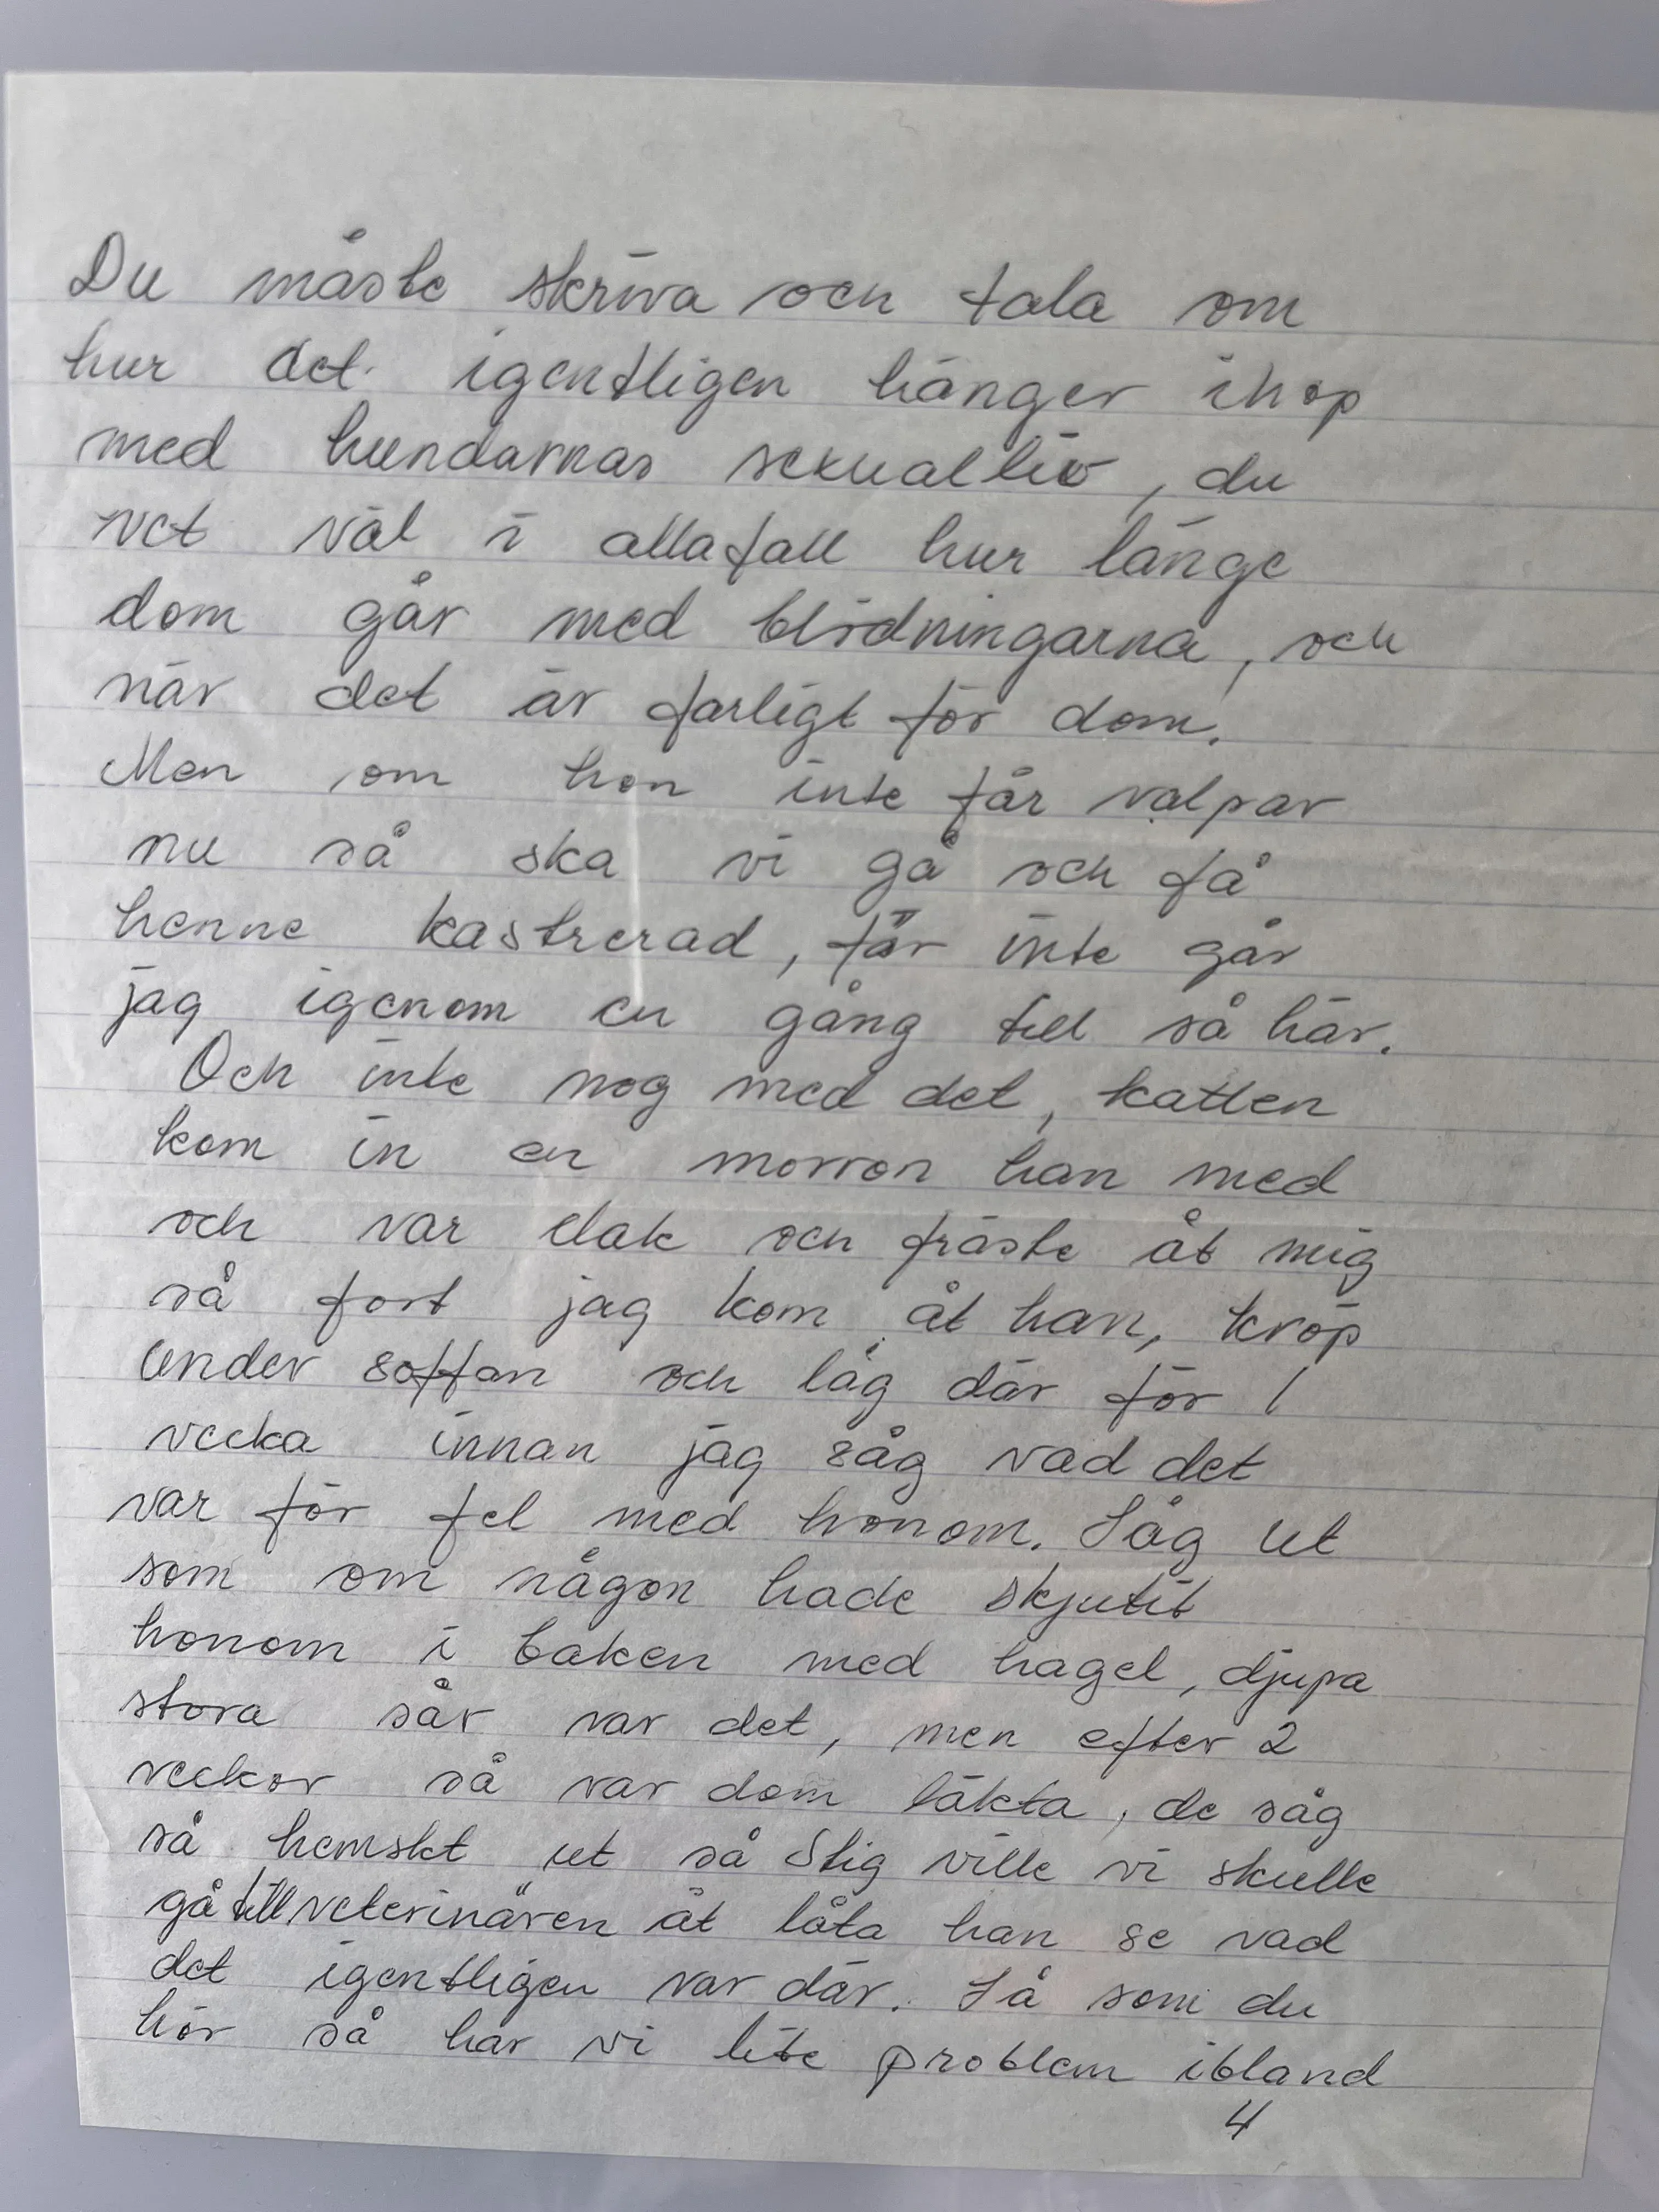 Du måste skriva och tala om
hur det igentligen hänger ihop
med hundarnas sexualliv, du
vet väl i allafall hur länge
dom går med blödningarna, och
när det är farligt för dom.
Men om hon inte får valpar
nu så ska vi gå och få
henne kastrerad, för inte går
jag igenom en gång till så här.
Och inte nog med det, katten
kom in en morron han med
och var elak och fräste åt mig
så fort jag kom åt han, kröp
under soffan och låg där för 1
vecka innan jag såg vad det
var för fel med honom. Såg ut
som om någon hade skjutit
honom i baken med hagel, djupa
stora sår var det, men efter 2
veckor så var dom läkta, de såg
så hemskt ut så Stig ville vi skulle
gå till veterinären åt låta han se vad
det igentligen var där. Så som du
hör så har vi lite problem ibland
4